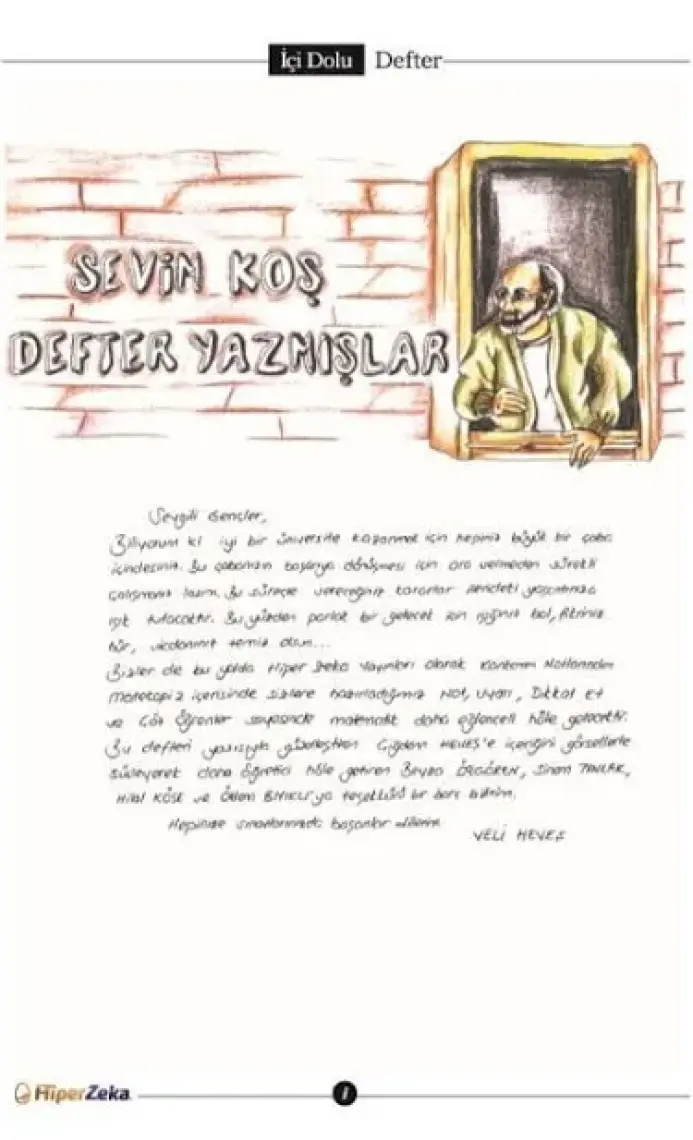 İçi Dolu Defter
SEVİM KOŞ
DEFTER YAZMIŞLAR
Sevgili Gençler,
Biliyorum ki iyi bir üniversite kazanmak için hepiniz büyük bir çaba
içindesiniz. Bu çabanızın başarıya dönüşmesi için ara vermeden sürekli
çalışmanız lazım. Bu süreçte vereceğiniz kararlar ilerideki yaşantınıza
ışık tutacaktır. Bu yüzden parlak bir gelecek için ışığınız bol, fikriniz
hür, vicdanınız temiz olsun...
Bizler de bu yolda Hiper Zeka Yayınları olarak
içerisinde sizlere hazırladığımız Not, Uyarı, Dikkat Et
ve Çöz Öğrenler sayesinde matematik daha eğlenceli hâle gelecektir.
Bu defteri yazısıyla güzelleştiren Çiğdem HEVES'e içeriğini görsellerle
süsleyerek daha öğretici hâle getiren Beyza Sinem
Hilal KÖSE ve Özlem teşekkürü bir borç bilirim.
Hepinize sınavlarınızda başarılar dilerim.
VELİ HEVES
HiperZeka